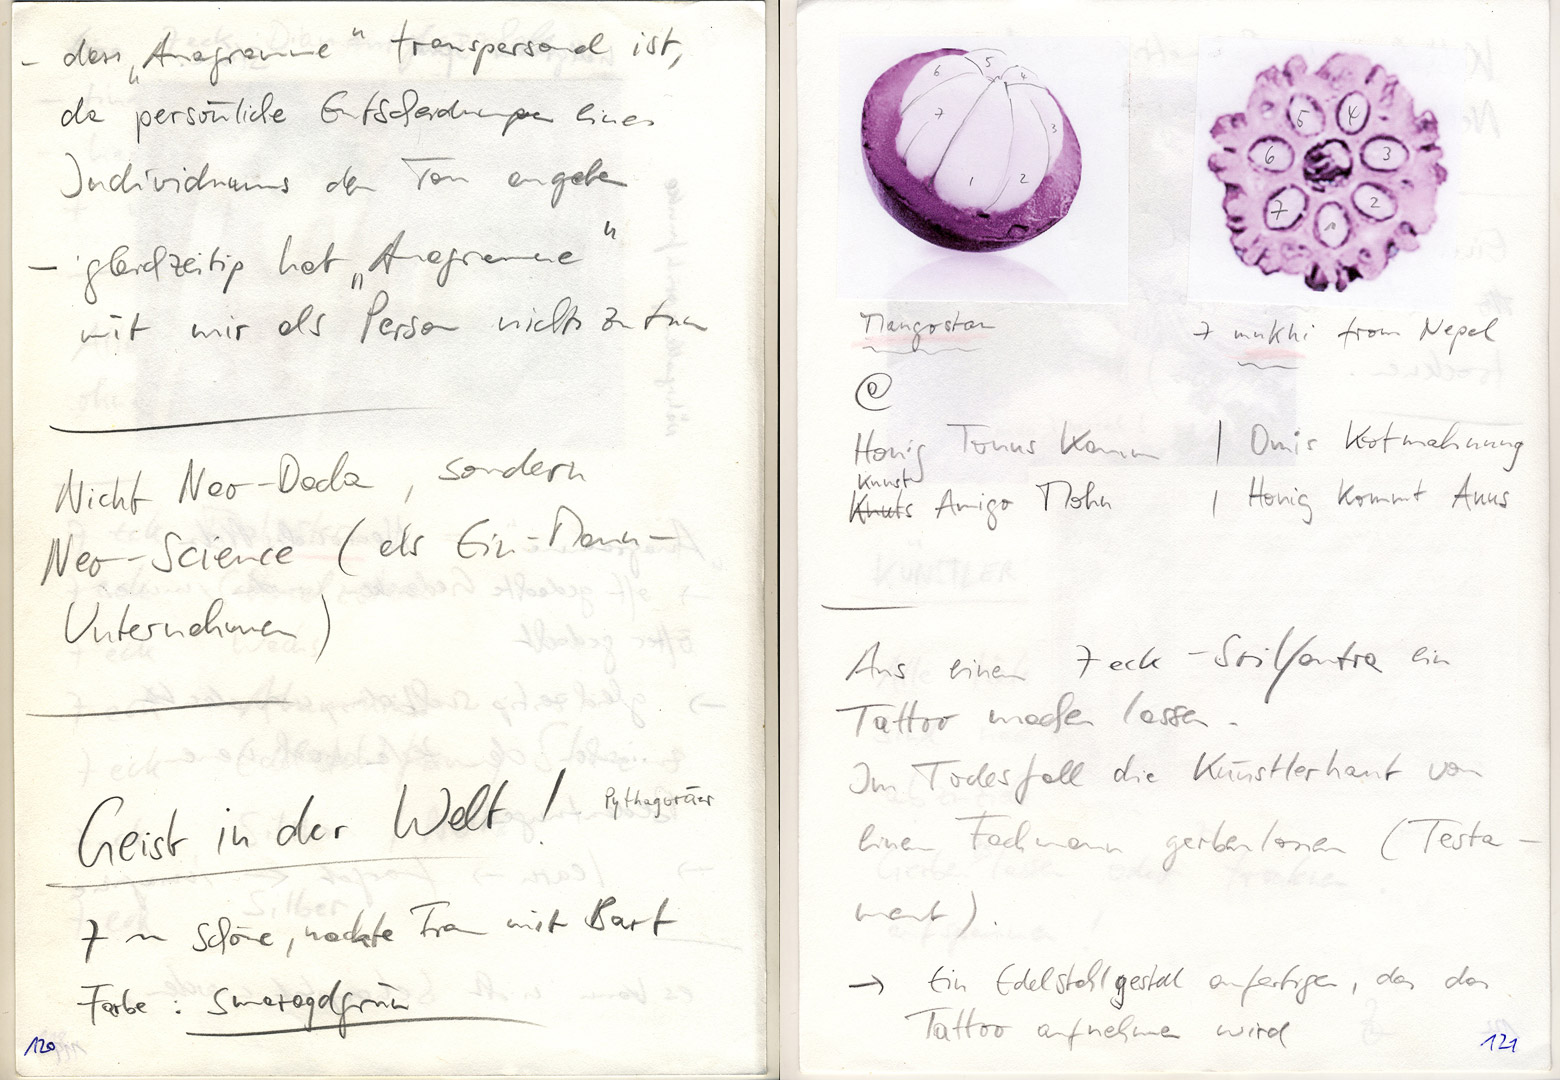 - dass „Anagramme" transpersonal ist,
da persönliche Entscheidungen eines
Individuums den Ton angeben
- gleichzeitig hat „Anagramme"
mit mir als Person nichts zu tun
Nicht Neo-Dada, sondern
Neo-Science (als Ein-Mann-
Unternehmen)
Geist in der Welt! Pythagoräer
7 ~ schöne, nackte Frau mit Bart
Farbe: Smaragdgrün
120
6 5 4
7 3
1 2
5 4
6 3
7 2
1
Mangostan
7 mukhi from Nepal
@
Honig Tonus Kamm | Omis Kotmahnung
Kunst
Knuts Amigo Mohn | Honig kommt Anus
Aus einem 7eck - ein
Tattoo machen lassen.
Im Todesfall die Künstlerhaut von
einem Fachmann gerben lassen (Testa-
ment).
→ Ein Edelstahlgestell anfertigen, das das
Tattoo aufnehmen wird
121